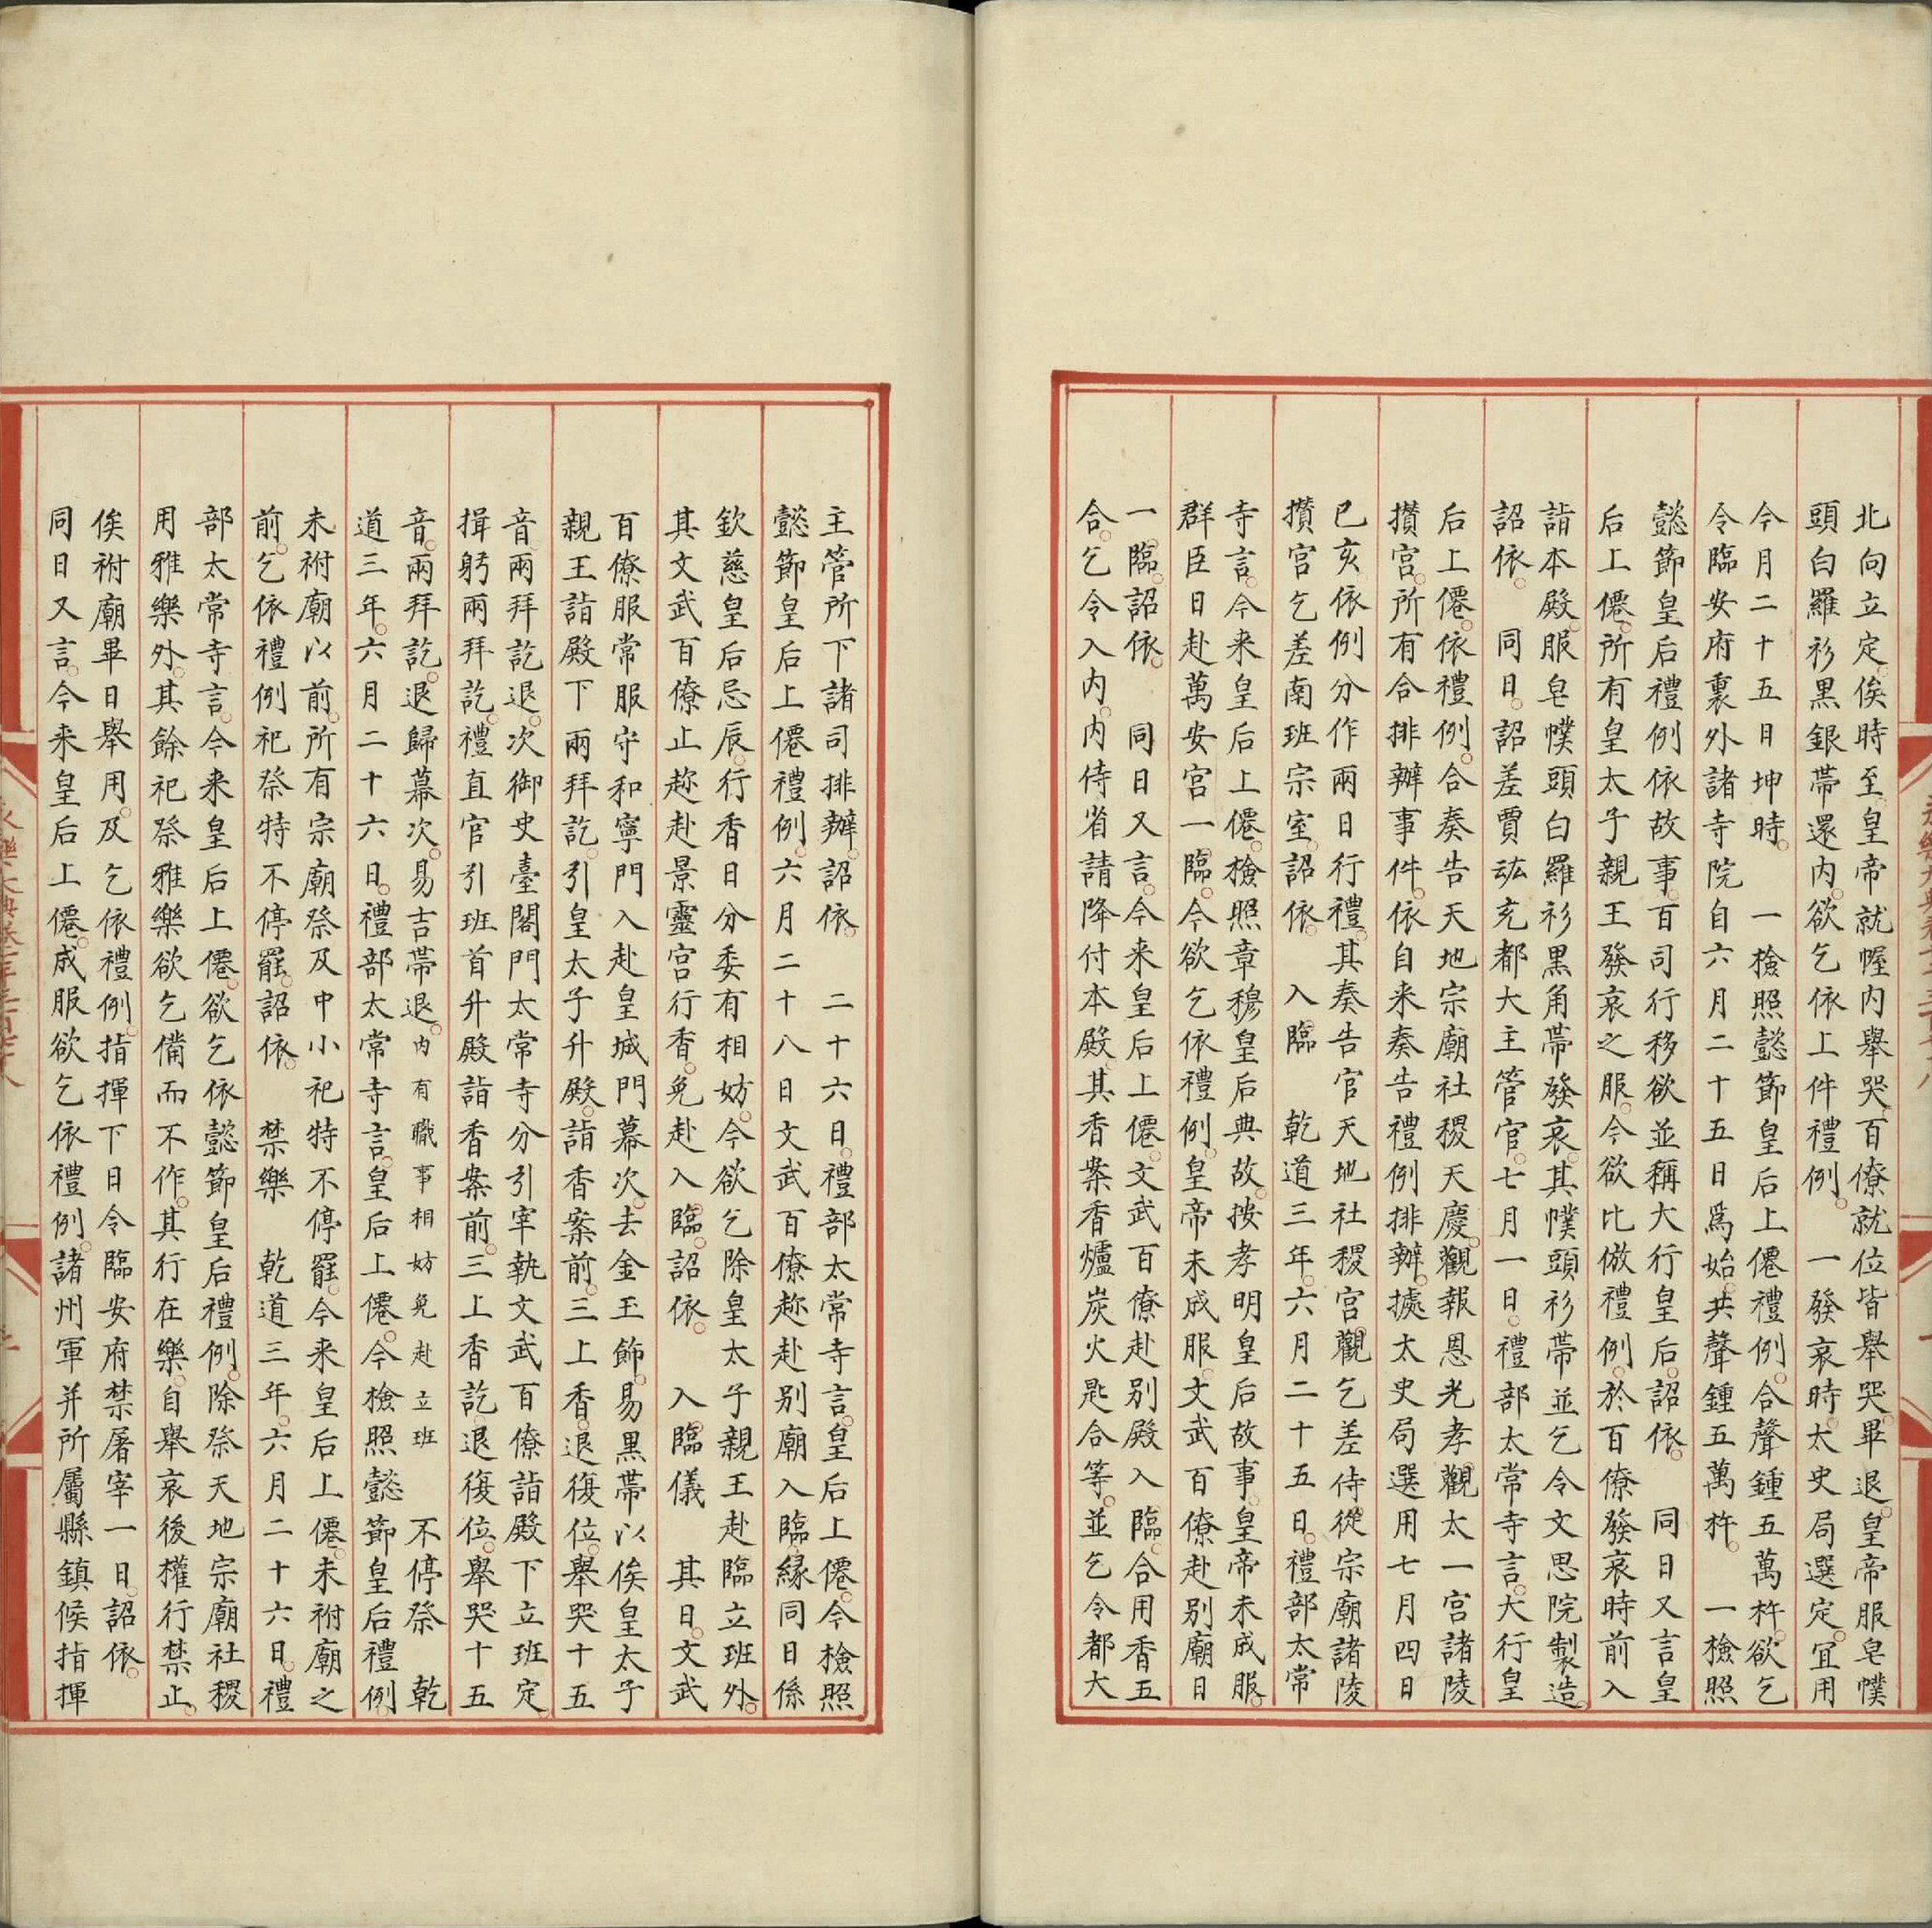 北向立定俟時至皇帝就幄内舉哭百僚就位皆舉哭畢退皇帝服皂幞
頭白羅衫黑銀帶還内欲乞依上件禮例　一發哀時太史局選定宜用
今月二十五日坤時　一檢照懿節皇后上僊禮例合聲鍾五萬杵欲乞
令臨安府裏外諸寺院自六月二十五日爲始共聲鍾五萬杵　一檢照
懿節皇后禮例依故事百司行移欲並稱大行皇后詔依　同日又言皇
后上僊所有皇太子親王發哀之服今欲比倣禮例於百僚發哀時前入
詣本殿服皂幞頭白羅衫黑角帶發哀其幞頭衫帶並乞令文思院製造
詔依　同日詔差賈竑充都大主管官七月一日禮部太常寺言大行皇
后上僊依禮例合奏告天地宗廟社稷天慶觀報恩光孝觀太一宮諸陵
攢宮所有合排辦事件依自来奏告禮例排辦據太史局選用七月四日
已亥依例分作兩日行禮其奏告官天地社稷宮觀乞差侍從宗廟諸陵
攢宮乞差南班宗室詔依　入臨　乾道三年六月二十五日禮部太常
寺言今来皇后上僊檢照章穆皇后典故按孝明皇后故事皇帝未成服
群臣日赴萬安宮一臨今欲乞依禮例皇帝未成服文武百僚赴别廟日
一臨詔依　同日又言今来皇后上僊文武百僚赴别殿入臨合用香五
合乞令入内内侍省請降付本殿其香案香爐炭火匙合等並乞令都大
主管所下諸司排辦詔依　二十六日禮部太常寺言皇后上僊今檢照
懿節皇后上僊禮例六月二十八日文武百僚趂赴别廟入臨緣同日係
欽慈皇后忌辰行香日分委有相妨今欲乞除皇太子親王赴臨立班外
其文武百僚止趂赴景靈宮行香免赴入臨詔依　入臨儀　其日文武
百僚服常服守和寧門入赴皇城門幕次去金玉飾易黑帶以俟皇太子
親王詣殿下兩拜訖引皇太子升殿詣香案前三上香退復位舉哭十五
音兩拜訖退次御史臺閤門太常寺分引宰執文武百僚詣殿下立班定
揖躬兩拜訖禮直官引班首升殿詣香案前三上香訖退復位舉哭十五
音兩拜訖退歸幕次易吉帶退内有職事相妨免赴立班　不停祭　乾
道三年六月二十六日禮部太常寺言皇后上僊今檢照懿節皇后禮例
未祔廟以前所有宗廟祭及中小祀特不停罷今来皇后上僊未祔廟之
前乞依禮例祀祭特不停罷詔依　禁樂　乾道三年六月二十六日禮
部太常寺言今来皇后上僊欲乞依懿節皇后禮例除祭天地宗廟社稷
用雅樂外其餘祀祭雅樂欲乞備而不作其行在樂自舉哀後權行禁止
俟祔廟畢日舉用及乞依禮例指揮下日令臨安府禁屠宰一日詔依
同日又言今来皇后上僊成服欲乞依禮例諸州軍并所屬縣鎮候指揮